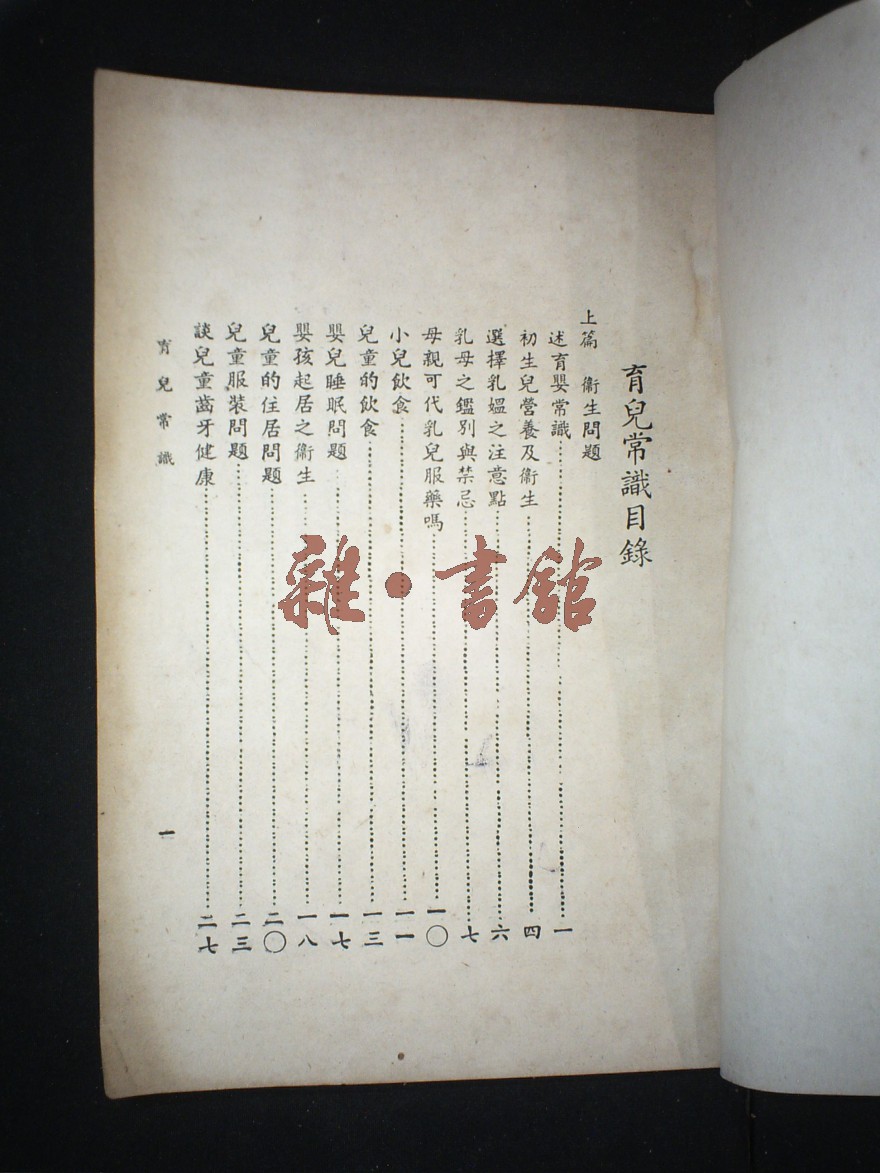 育兒常識目錄
上篇 衞生問題
述育嬰常識⋯⋯一
初生兒營養及衞生⋯⋯四
選擇乳媼之注意點⋯⋯六
乳母之鑑別與禁忌⋯⋯七
母親可代乳兒服藥嗎⋯⋯一〇
小兒飲食⋯⋯一一
兒童的飲食⋯⋯一三
嬰兒睡眠問題⋯⋯一七
嬰孩起居之衞生⋯⋯一八
兒童的住居問題⋯⋯二〇
兒童服裝問題⋯⋯二三
談兒童齒牙健康⋯⋯二七
育兒常識
一
雜·書館